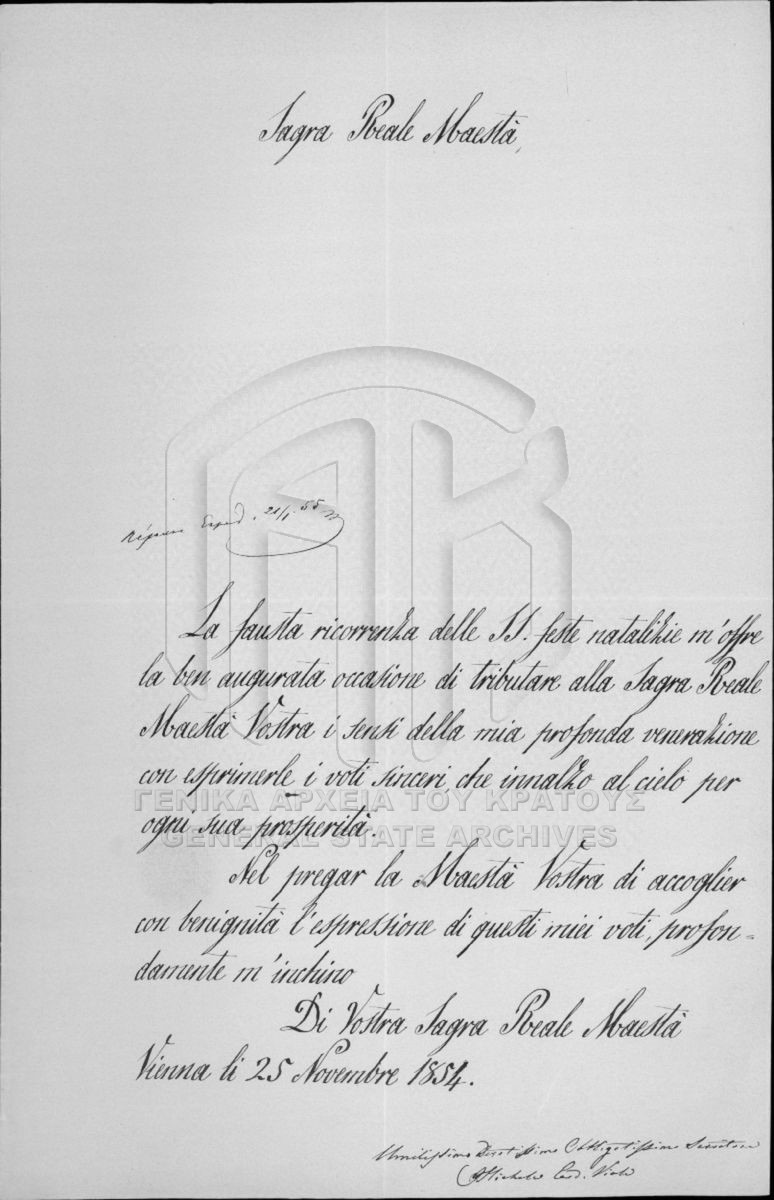 Sagra Reale Maestà,
Réponse Exped. 21/1 55
La fausta ricorrenza delle SS. feste natalizie m'offre
la ben augurata occasione di tributare alla Sagra Reale
Maestà Vostra i sensi della mia profonda venerazione
con esprimerle i voti sinceri, che innalzo al cielo per
ΓΕΝΙΚΑ ΑΡΧΕΙΑ ΤΟΥ ΚΡΑΤΟΥΣ
ogni sua prosperità.
GENERAL STATE ARCHIVES
Nel pregar la Maestà Vostra di accoglier
con benignità l'espressione di questi miei voti, profon=
damente m'inchino
Di Vostra Sagra Reale Maestà
Vienna li 25 Novembre 1854.
Umilissimo Devotissimo Obbligatissimo Servitore
Michele Card. Viale